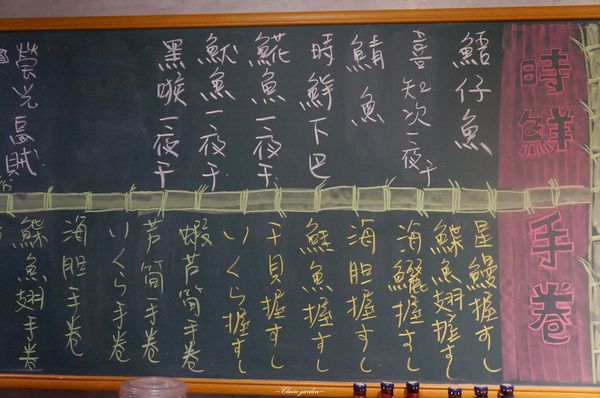 時鮮
鮕仔魚
喜知次一夜干
鯖魚
時鮮下巴
鯡魚一夜干
魷魚一夜干
黑喉一夜干
螢光烏賊
手卷
星鰻握すし
鰈魚翅握すし
海鱺握すし
海胆握すし
鮭魚握すし
干貝握すし
いくら握すし
蝦芦筍手卷
芦筍手卷
いくら手卷
海胆手卷
鰈魚翅手卷
~Claire garden~